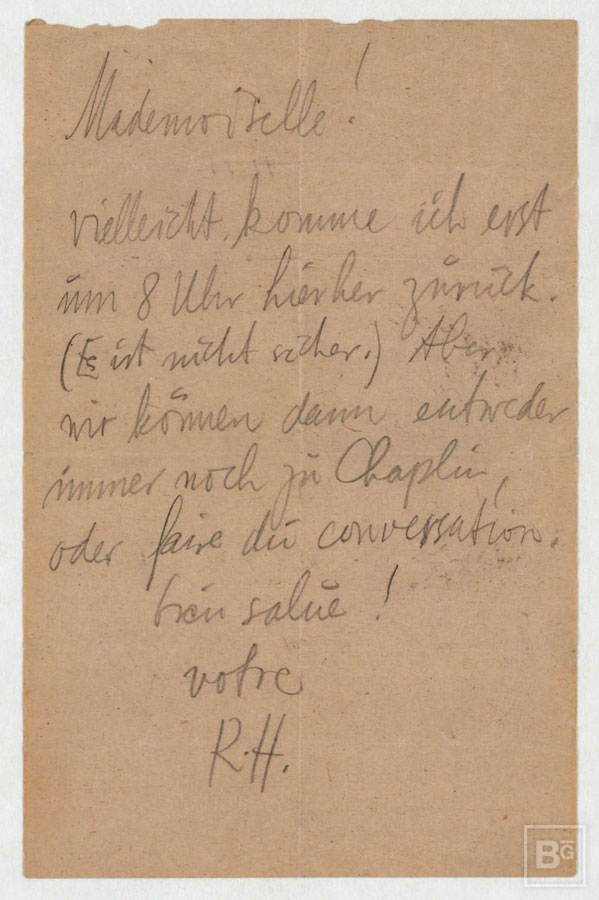 Mademoiselle!
vielleicht komme ich erst
um 8 Uhr hierher zurück.
(Es ist nicht sicher.) Aber
wir können dann entweder
immer noch zu Chaplin,
oder faire du conversation.
bien salue!
votre
R.H.
BG